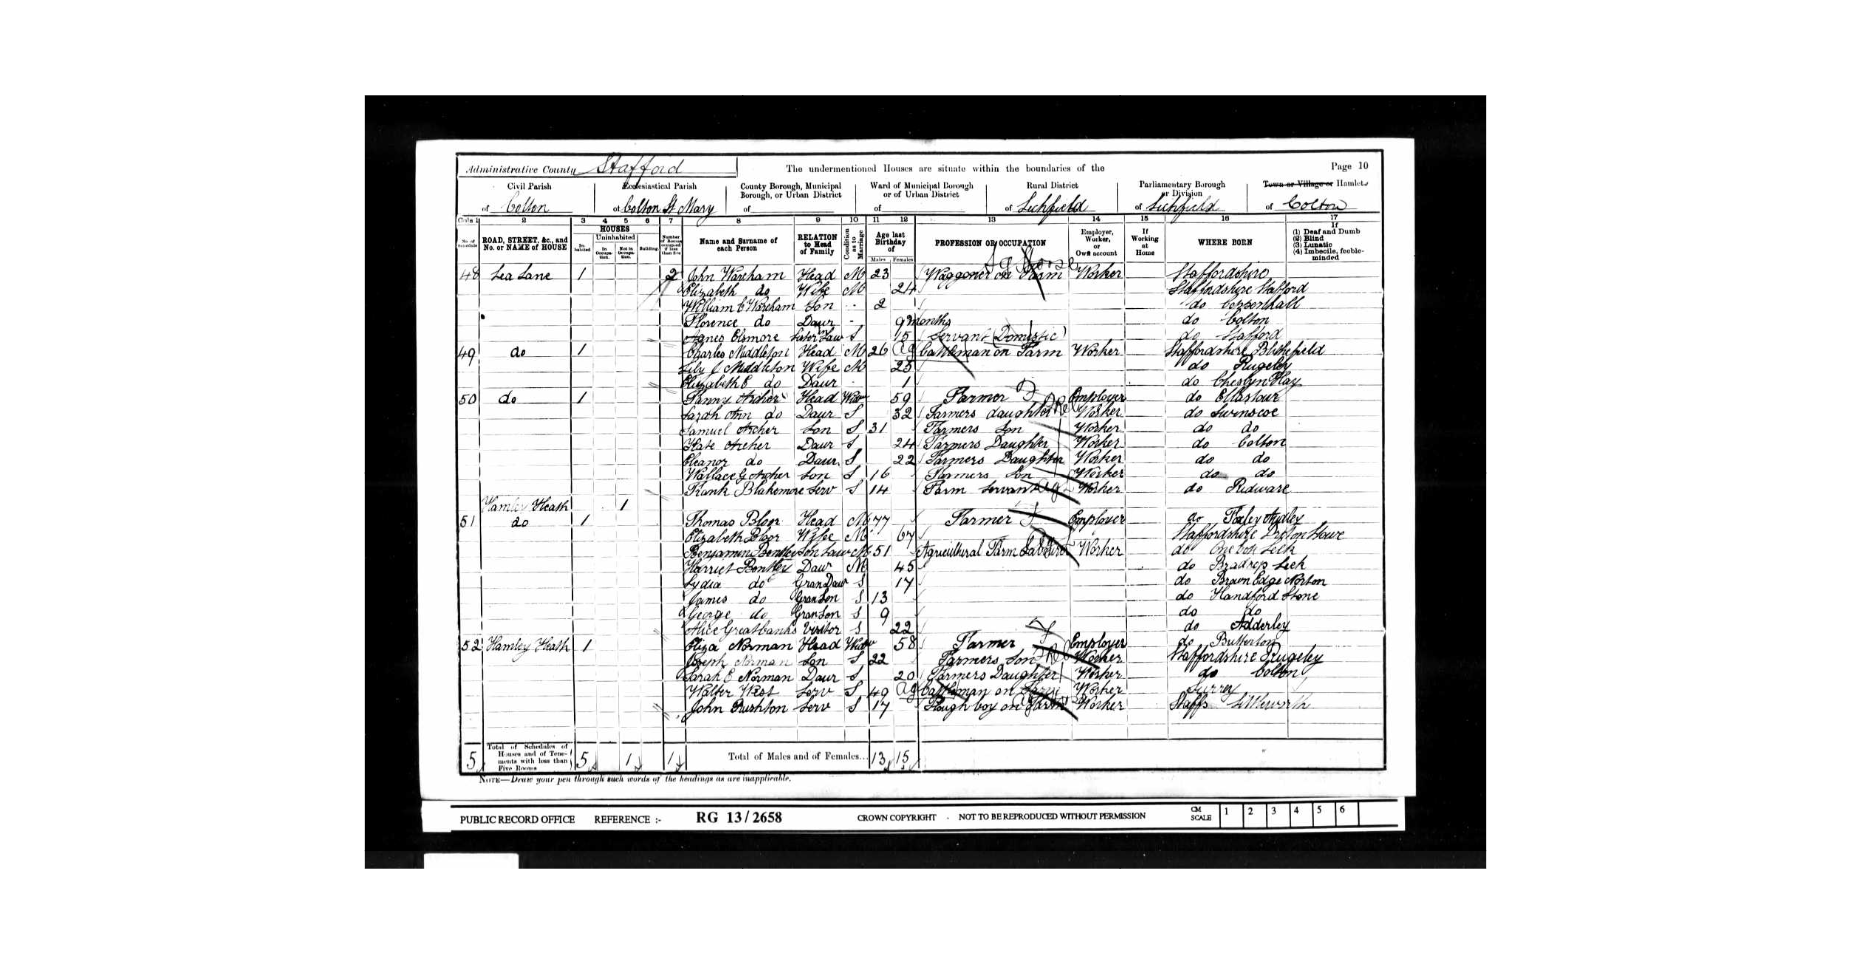 Administrative County Stafford The undermentioned Houses are situate within the boundaries of the Page 10
Civil Parish Ecclesiastical Parish County Borough, Municipal Borough, or Urban District Ward of Municipal Borough or of Urban District Rural District Parliamentary Borough or Division Town or Village or Hamlet
of Colton of Colton St Mary of of of Lichfield of Lichfield of Colton
3 4 5 6 7 8 9 10 11 12 13 14 15 16 17
ROAD, STREET, &c., and No. or NAME of HOUSE HOUSES Uninhabited Building Name and Surname of each Person RELATION to Head of Family Condition as to Marriage Age last Birthday of Males Females PROFESSION OR OCCUPATION Employer, Worker, or Own account If Working at Home WHERE BORN If (1) Deaf and Dumb (2) Blind (3) Lunatic (4) Imbecile, feeble-minded
48 Lea Lane 1 2 John Wareham Head M 23 Waggoner on Farm Worker Staffordshire
Elizabeth do Wife M 24 Staffordshire Stafford
William C Wareham Son - 2 do Coppenhall
Florence do Daur - 9 months do Colton
Agnes Elsmore Sister in Law S 15 Servant (Domestic) do Stafford
49 do 1 Charles Middleton Head M 26 Cattleman on Farm Worker Staffordshire Blithefield
Lily C Middleton Wife M 25 do Rugeley
Elizabeth E do Daur - 1 do Cheslyn Hay
50 do 1 Fanny Archer Head Wid 59 Farmer Employer do Ellastone
Sarah Ann do Daur S 32 Farmers daughter Worker do Swinscoe
Samuel Archer Son S 31 Farmers Son Worker do do
Kate Archer Daur S 24 Farmers Daughter Worker do Colton
Eleanor do Daur S 22 Farmers Daughter Worker do do
Wallace G Archer Son S 16 Farmers Son Worker do do
Frank Blakemore Serv S 14 Farm Servant Worker do Ridware
Hamley Heath 1
51 do 1 Thomas Bloor Head M 77 Farmer Employer do
Elizabeth Bloor Wife M 67 Staffordshire
Benjamin Bentley Son Law M 51 Agricultural Farm Labourer Worker do Leek
Harriet Bentley Daur M 45 do Bradnop Leek
Lydia do GranDaur S 17 do Brown Edge Norton
James do GranSon S 13 do Handford Stone
George do GranSon S 9 do do
Alice Greatbanks Visitor S 22 do Adderley
52 Hamley Heath 1 Eliza Norman Head Wid 58 Farmer Employer do Butterton
Joseph Norman Son S 22 Farmers Son Worker Staffordshire Rugeley
Sarah E Norman Daur S 20 Farmers Daughter Worker do Colton
Walter West Serv S 49 Cattleman on Farm Worker Surrey
John Rushton Serv S 17 Plough boy on Farm Worker Staffs
5 Total of Schedules of Houses and of Tenements with less than Five Rooms 5 1 1 Total of Males and of Females... 13 15
NOTE—Draw your pen through such words of the headings as are inapplicable.
PUBLIC RECORD OFFICE REFERENCE :- RG 13/2658 CROWN COPYRIGHT - NOT TO BE REPRODUCED WITHOUT PERMISSION CM SCALE 1 2 3 4 5 6